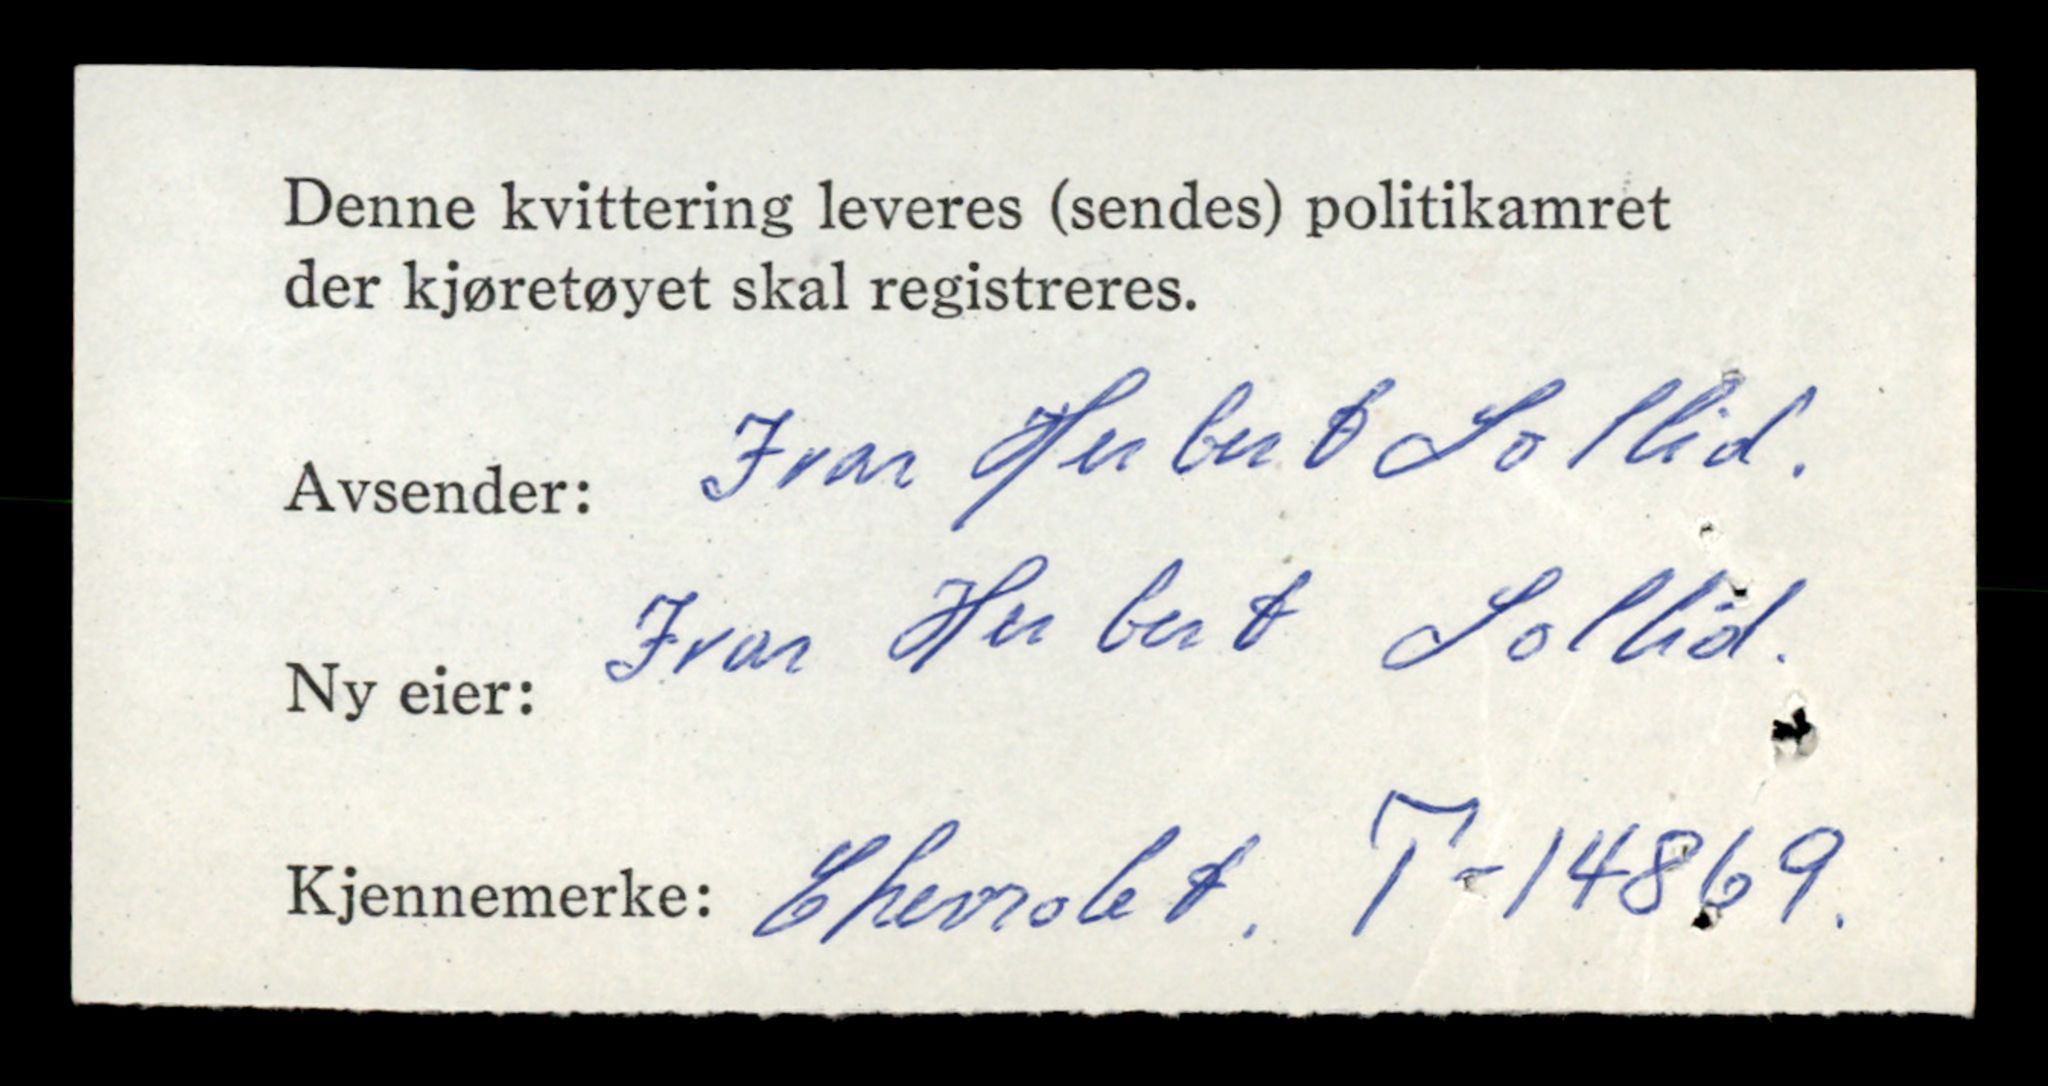 Denne kvittering leveres (sendes) politikamret
der kjøretøyet skal registreres.
Avsender: Ivar Herbert Sollid.
Ny eier: Ivar Herbert Sollid.
Kjennemerke: Chevrolet. T-14869.